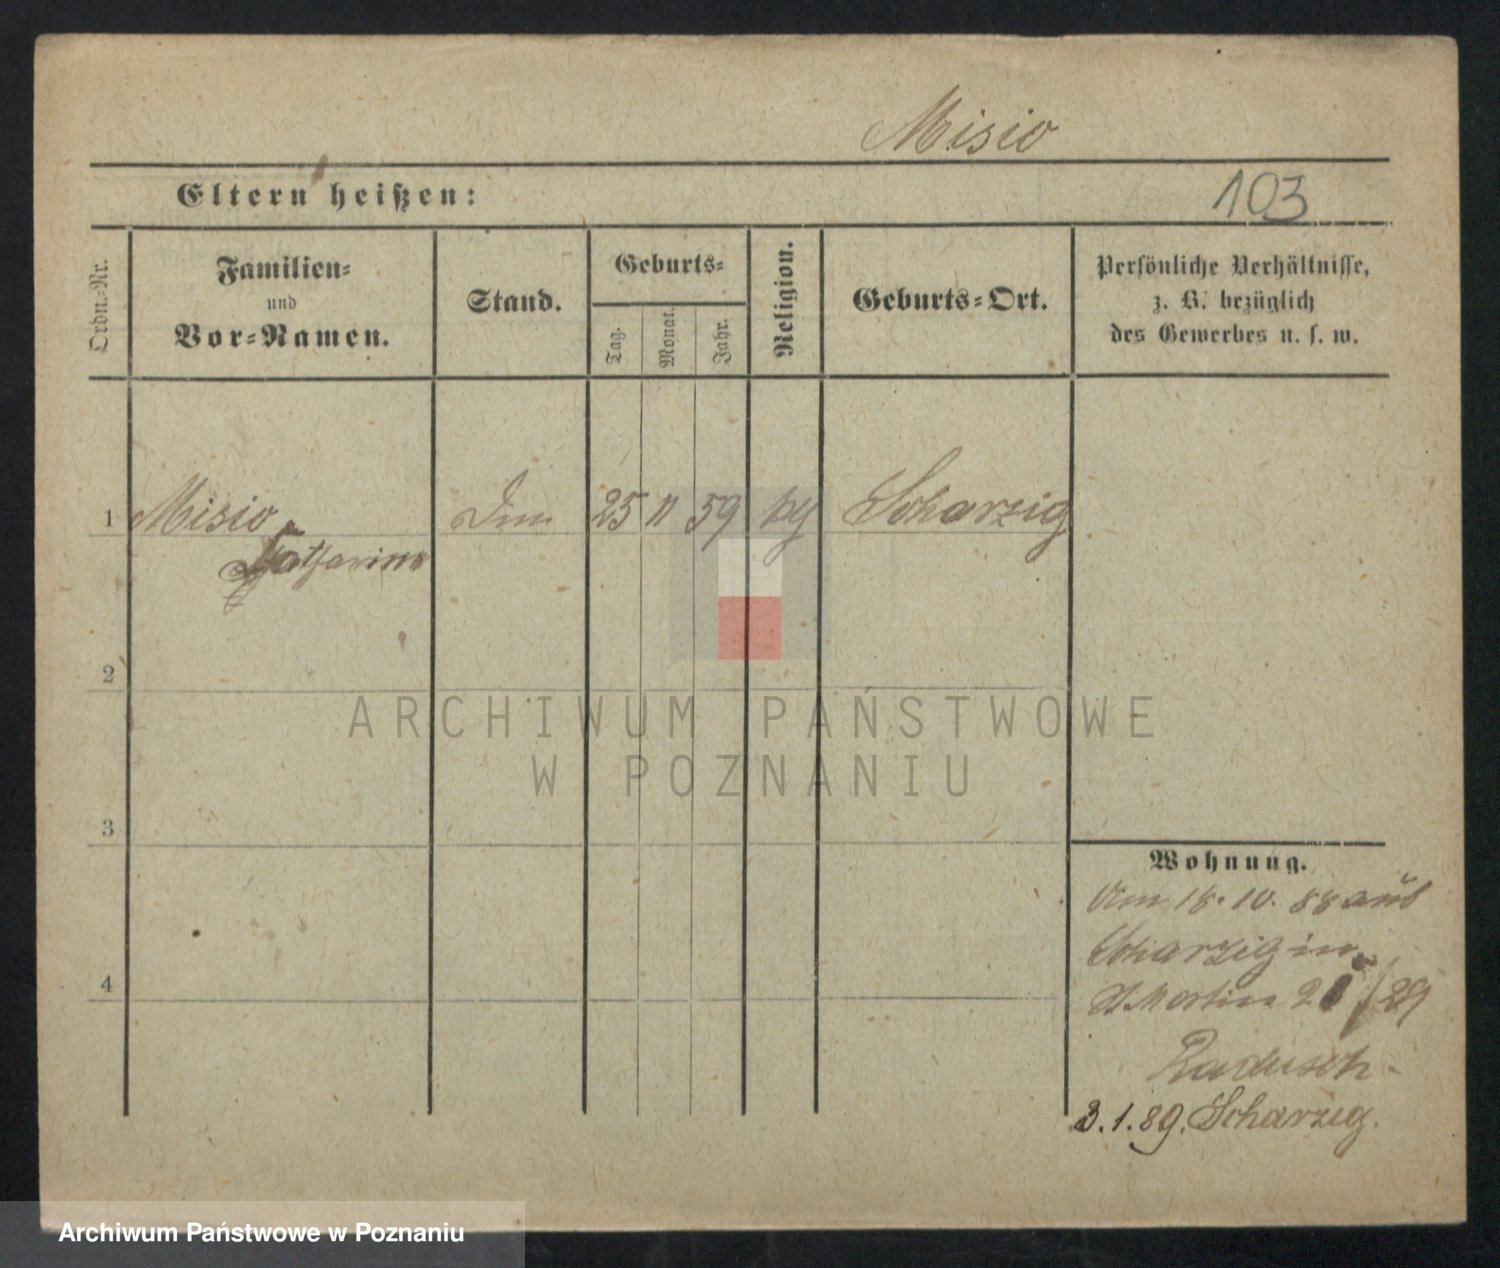 Misio
Eltern heißen:
103
Ordn.-Nr.
Familien-
und
Vor-Namen.
Stand.
Geburts-
Tag.
Monat.
Jahr.
Religion.
Geburts-Ort.
Persönliche Verhältnisse,
z. B. bezüglich
des Gewerbes u. s. w.
1 Misio 25 11 59 Scharzig
Katharina
2
3
4
ARCHIWUM PAŃSTWOWE
W POZNANIU
Wohnung.
Am 18. 10. 88 aus
Scharzig in
St Martin 29
Radusch
3.1.89. Scharzig.
Archiwum Państwowe w Poznaniu